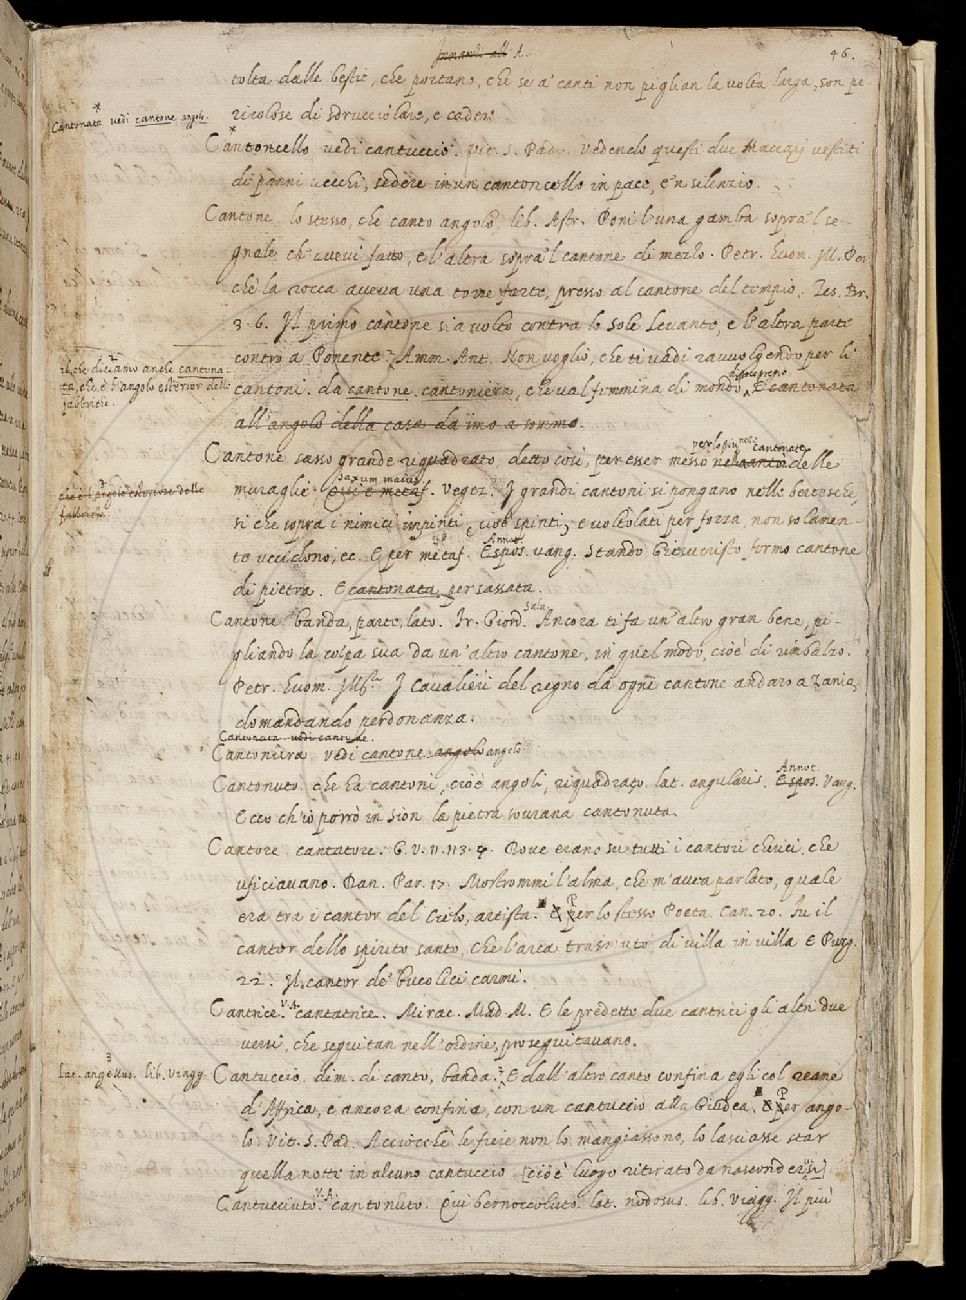 Innanti all A.
46.
tolta dalle bestie, che portano, che se a' canti non piglian la volta larga, son pe-
ricolose di sdrucciolare, e cader.
* Cantonata vedi cantone angolo.
Cantoncello vedi cantuccio. Vit. S. Pad. Vedendo questi due vestiti
di panni vecchi, sedere in un cantoncello in pace, e 'n silenzio.
Cantone lo stesso, che canto angolo, lib. Astr. Poni l'una gamba sopra 'l se-
gnale, ch' avevi fatto, e l'altra sopra 'l cantone di merlo. Petr. huom. Ill. Per
chè la rocca aveva una torre forte, presso al cantone del tempio. Tes. Br.
3. 6. Il primo cantone sia volto contra lo Sole Levante, e l'altra parte
contro a Ponente. Amm. Ant. Non voglio, che ti vadi ravvolgendo per li
il che diciamo anche cantona-
ta, che è l'angolo esterior delle
fabbriche.
cantoni. da cantone. cantoniera, che val femmina di mondo, E cantonata
all'angolo della casa da imo a sommo.
per lo più nelle cantonate
Cantone sasso grande riquadrato, detto così, per esser messo ne' canti delle
che è l'angolo esteriore delle
fabbriche
saxum maius
muraglie. Qui è metaf. Veget. I grandi cantoni si pongano nelle bertesche,
sì che sopra i nimici impinti, cioè spinti, e voltolati per forza, non solamen-
te uccidono, ec. E per metaf. Annot. Espos. vang. Stando Giesucristo fermo cantone
di pietra. E cantonata, per sassata.
Cantone banda, parte, lato. Fr. Giord. Salv. Ancora ti fa un'altro gran bene, pi-
gliando la colpa sua da un'altro cantone, in quel modo, cioè di rimbalzo.
Petr. huom. Ill. I Cavalieri del regno da ogni cantone andaro a Zania,
domandando perdonanza.
Cantonata vedi cantone.
Cantoniera vedi cantone angolo angolo
Cantonuto che ha cantoni, cioè angoli, riquadrato lat. angularis. Annot. Espos. Vang.
Ecco ch'io porrò in Sion la pietra sovrana cantonuta.
Cantore cantatore. G. V. 11. 113. 7. Dove erano su tutti i cantori cherici, che
uficiavano. Dan. Par. 17. Mostrommi l'alma, che m'avea parlato, quale
era tra i cantor del Cielo, artista. E Per lo stesso Poeta. Can. 20. Fu il
cantor dello spirito santo, che l'arca trasmutò di villa in villa E Purg.
22. Il cantor de' bucolici carmi.
Cantrice V.A. cantatrice. Mirac. Mad. M. E le predette due cantrici gli altri due
versi, che seguitan nell'ordine, proseguitavano.
lat. angellus. lib. viagg.
Cantuccio dim. di canto, banda. E dall'altro canto confina egli col reame
d'Affrica, e ancora confina, con un cantuccio alla Giudea. E Per ango-
lo. Vit. S. Pad. Acciocchè le fiere non lo mangiassono, lo lasciasse star
quella notte in alcuno cantuccio [cioè luogo ritirato da nascondersi]
Cantucciuto V.A. cantonuto. Qui bernoccoluto. lat. nodosus. lib. viagg. Il più